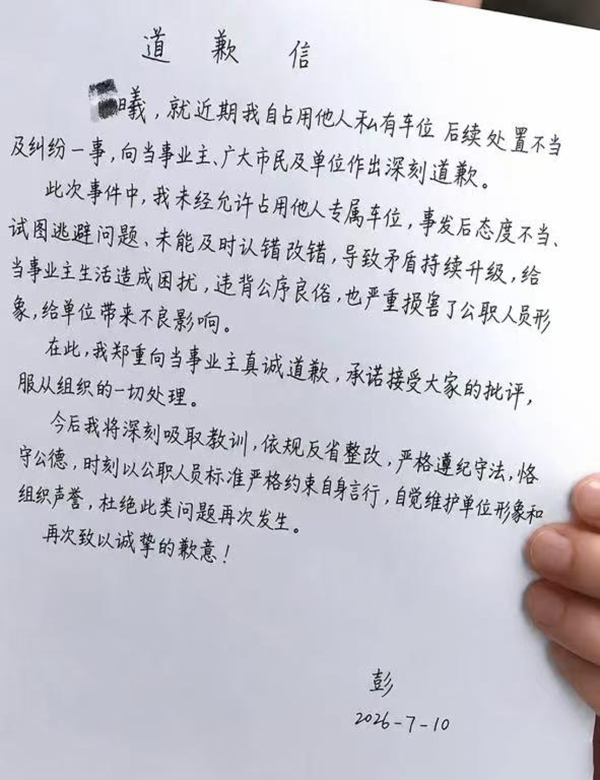 道歉信
曦，就近期我自占用他人私有车位 后续处置不当
及纠纷一事，向当事业主、广大市民及单位作出深刻道歉。
此次事件中，我未经允许占用他人专属车位，事发后态度不当、
试图逃避问题、未能及时认错改错，导致矛盾持续升级，给
当事业主生活造成困扰，违背公序良俗，也严重损害了公职人员形
象，给单位带来不良影响。
在此，我郑重向当事业主真诚道歉，承诺接受大家的批评，
服从组织的一切处理。
今后我将深刻吸取教训，依规反省整改，严格遵纪守法，恪
守公德，时刻以公职人员标准严格约束自身言行，自觉维护单位形象和
组织声誉，杜绝此类问题再次发生。
再次致以诚挚的歉意！
彭
2026-7-10